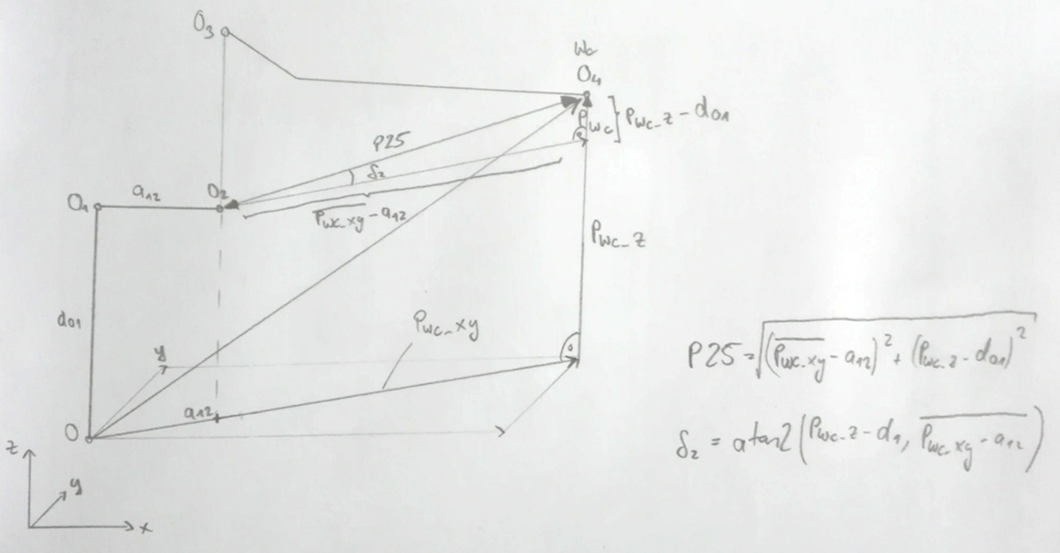 O₃
Wc
O₄
Pwc ] Pwc_z - d₀₁
P25
δ₂
O₁ a₁₂ O₂
Pwc_xy - a₁₂
Pwc_z
d₀₁
Pwc_xy
y
a₁₂
O
P25 = √((Pwc_xy - a₁₂)² + (Pwc_z - d₀₁)²)
δ₂ = atan2(Pwc_z - d₁, Pwc_xy - a₁₂)
z
y
x